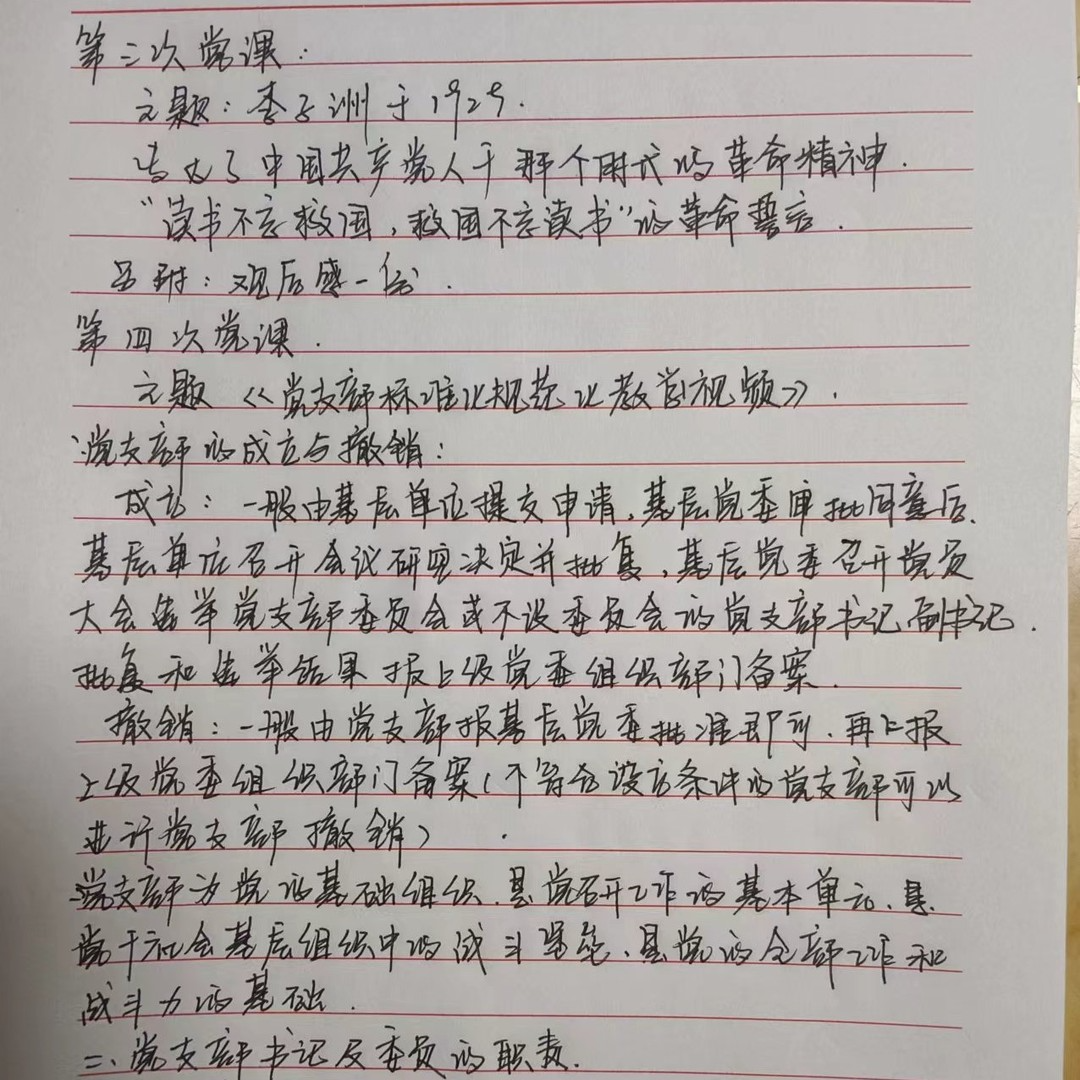 第三次党课：
主题：李子洲于1929.
表达了中国共产党人于那个时代的革命精神.
“读书不忘救国，救国不忘读书”的革命誓言.
另附：观后感一份.
第四次党课.
主题《党支部标准化规范化教学视频》.
党支部的成立与撤销：
成立：一般由基层单位提交申请，基层党委审批同意后、
基层单位召开会议研究决定并批复，基层党委召开党员
大会选举党支部委员会或不设委员会的党支部书记副书记.
批复和选举结果报上级党委组织部门备案.
撤销：一般由党支部报基层党委批准即可.再上报
上级党委组织部门备案（不符合设立条件的党支部可以
进行党支部撤销）
党支部为党的基础组织.是党召开工作的基本单元.是
党于社会基层组织中的战斗堡垒、是党的全部工作和
战斗力的基础.
二、党支部书记及委员的职责.